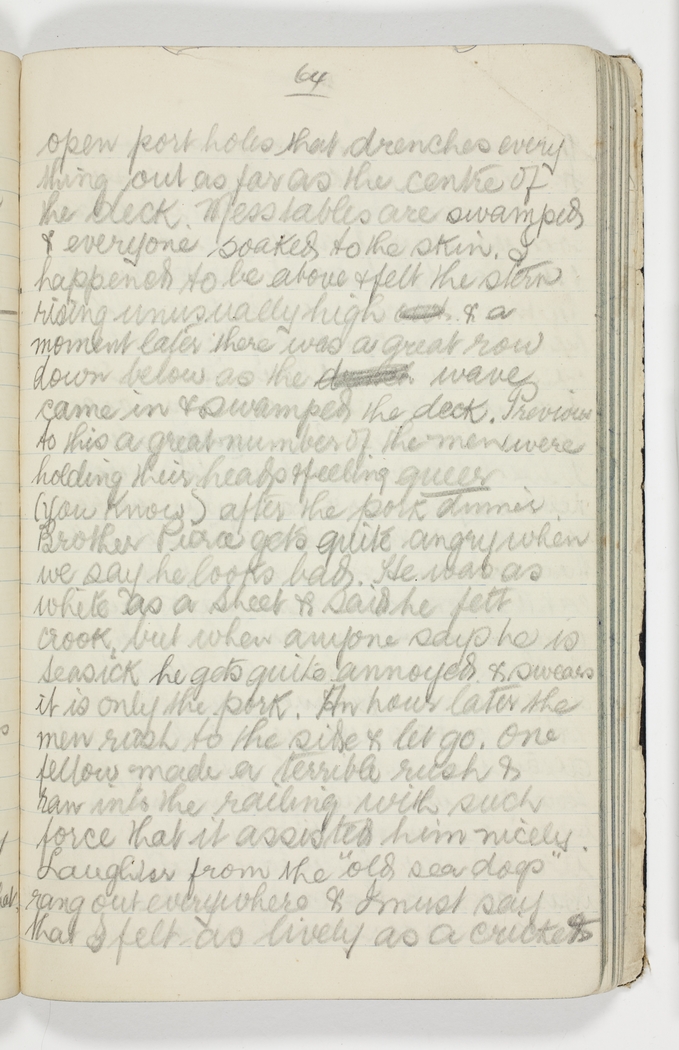 64
open port holes that drenches every
thing out as far as the centre of
the deck. Mess tables are swamped
& everyone soaked to the skin. I
happened to be above & felt the stern
rising unusually high & a
moment later there was a great row
down below as the wave
came in & swamped the deck. Previous
to this a great number of the men were
holding their heads & feeling queer
(you know) after the pork dinner.
Brother Pierce gets quite angry when
we say he looks bad. He was as
white as a sheet & said he felt
crook, but when anyone says he is
seasick he gets quite annoyed & swears
it is only the pork. An hour later the
men rush to the side & let go. One
fellow made a terrible rush &
ran into the railing with such
force that it assisted him nicely.
Laughter from the "old sea dogs"
rang out everywhere & I must say
that I felt as lively as a cricket